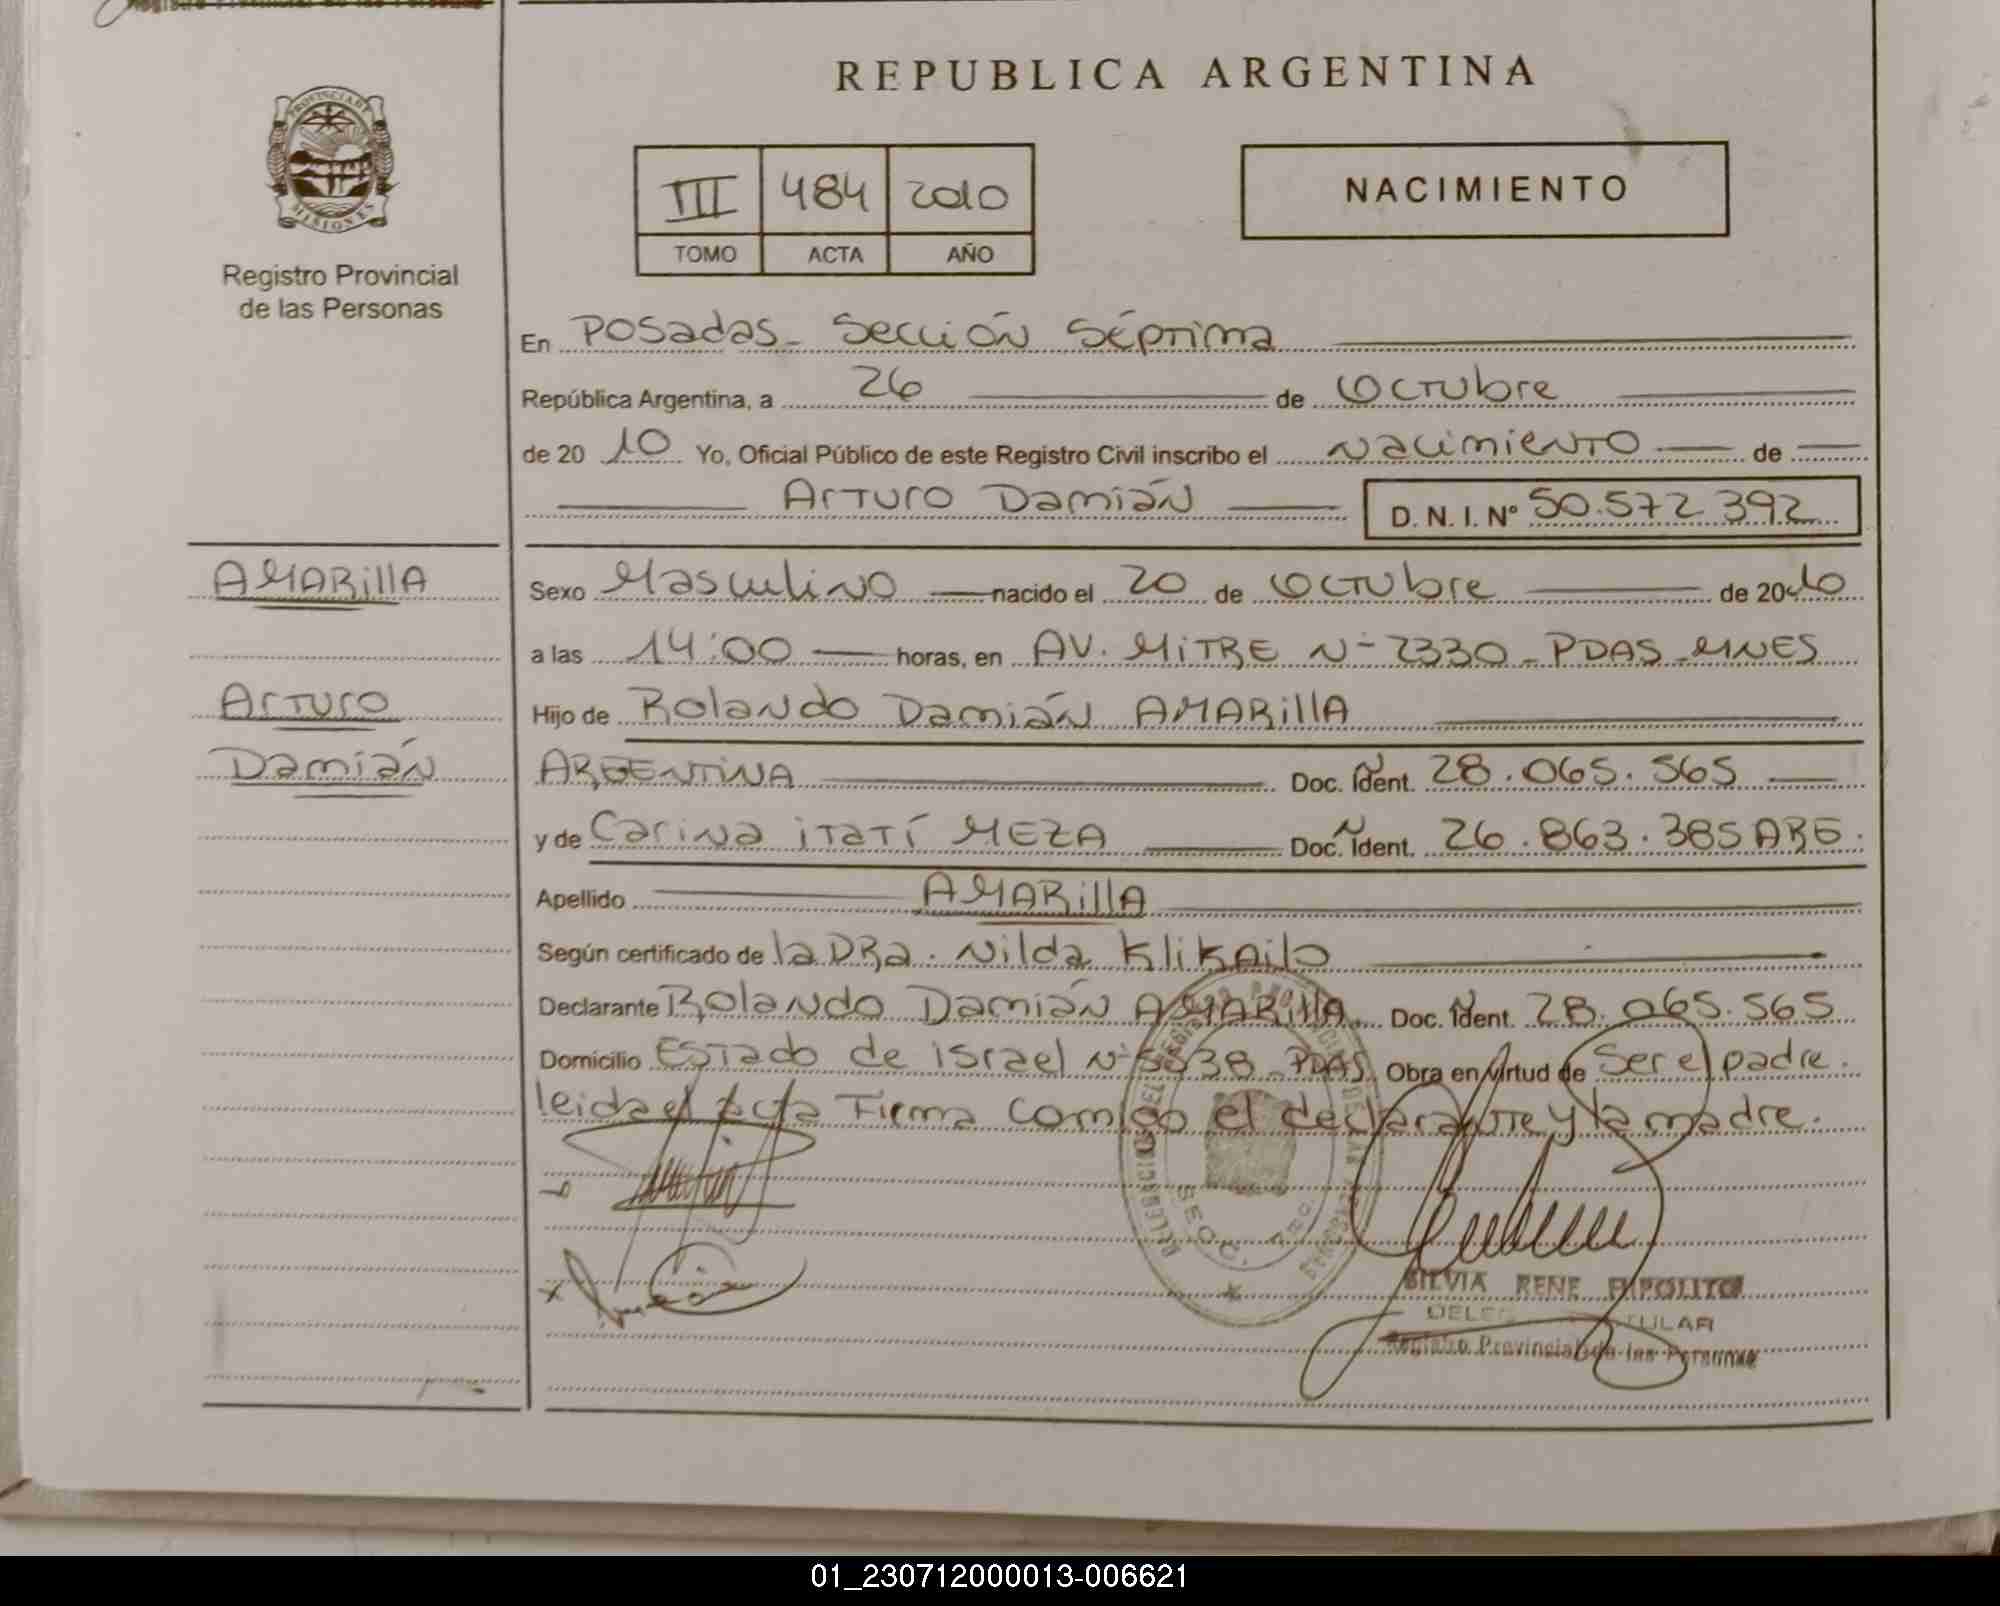 REPUBLICA ARGENTINA
PROVINCIA DE MISIONES
Registro Provincial
de las Personas
III 484 2010
TOMO ACTA AÑO
NACIMIENTO
En Posadas - Sección Séptima
República Argentina, a 26 de Octubre
de 20 10 Yo, Oficial Público de este Registro Civil inscribo el Nacimiento de
Arturo Damián D. N. I. Nº 50.572 392
AMARillA
Arturo
Damián
Sexo Masculino nacido el 20 de Octubre de 2010
a las 14:00 horas, en AV. MITRE Nº 2330 - PDAS - MNES
Hijo de Rolando Damián AMARillA
ARGENTINA Doc. Ident. 28.065.565
y de Carina itatí MEZA Doc. Ident. 26.863.385 ARG.
Apellido AMARillA
Según certificado de la DRa. Nilda Klikailo
Declarante Rolando Damián AMARillA Doc. Ident. 28.065.565
Domicilio Estado de israel Nº 5838 - PDAS Obra en virtud de Ser el padre.
leida el acta Firma comigo el declarante y la madre.
SILVIA RENE HIPOLITO
TULAR
Registro Provincial de las Personas
01_230712000013-006621